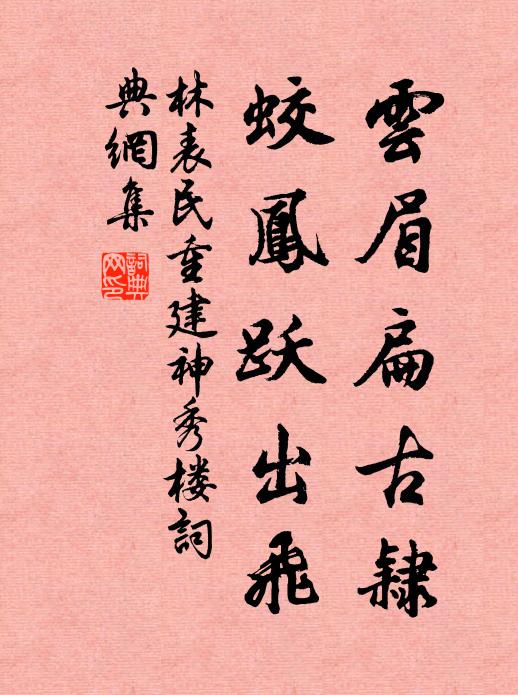 雲眉扁古隸
蛟鳳跃出飛
林表民重建神秀楼詞
典網集
詞典網印